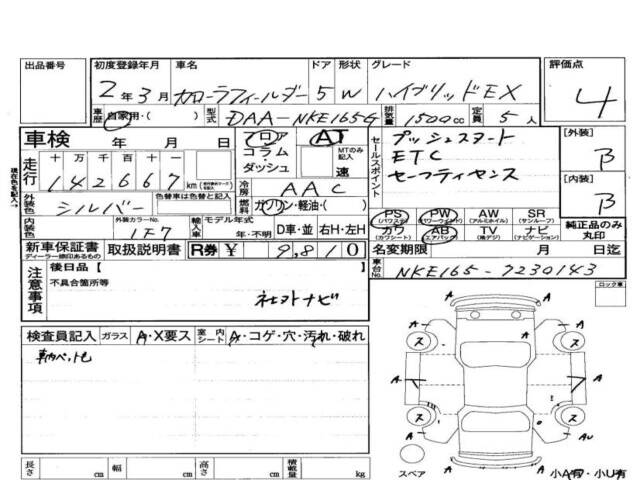 出品番号 初度登録年月 車名 ドア 形状 グレード 評価点
2年3月 カローラフィールダー 5 W ハイブリッドEX 4
車歴 自家用・( ) 型式 DAA-NKE165G 排気量 1500cc 定員 5人
車検 年 月 日 フロア コラム・ダッシュ AT MTのみ記入 速
セールスポイント プッシュスタート
ETC
セーフティセンス
[外装] B
[内装] B
現在色を記入→
走行 十万千百十一
142667 km
冷房 AAC
燃料 ガソリン・軽油・( )
外装色 シルバー 色替車は色替と記入
内装色 外装カラーNo. 1F7 輸入車 モデル年式 年・不明 D車・並 右H・左H
PS (パワステ) PW (パワーウィンド) AW (アルミホイル) SR (サンルーフ)
カワ (カワシート) AB (エアバック) TV (地デジ) ナビ (ナビゲーション)
純正品のみ丸印
新車保証書 ディーラー継印あるもの 取扱説明書 R券 ¥ 9,810
名変期限 月 日迄
車台No. NKE165-7230143
注意事項 後日品【 】
不具合箇所等
社外ナビ
ロック車
検査員記入 ガラス A・X要ス 室内シート A・コゲ・穴・汚れ・破れ
長さ cm 幅 cm 高さ cm 積載量 kg
A A
A ス ス A
A A
A ス ス A
A AU
A
スペア 小A有・小U有